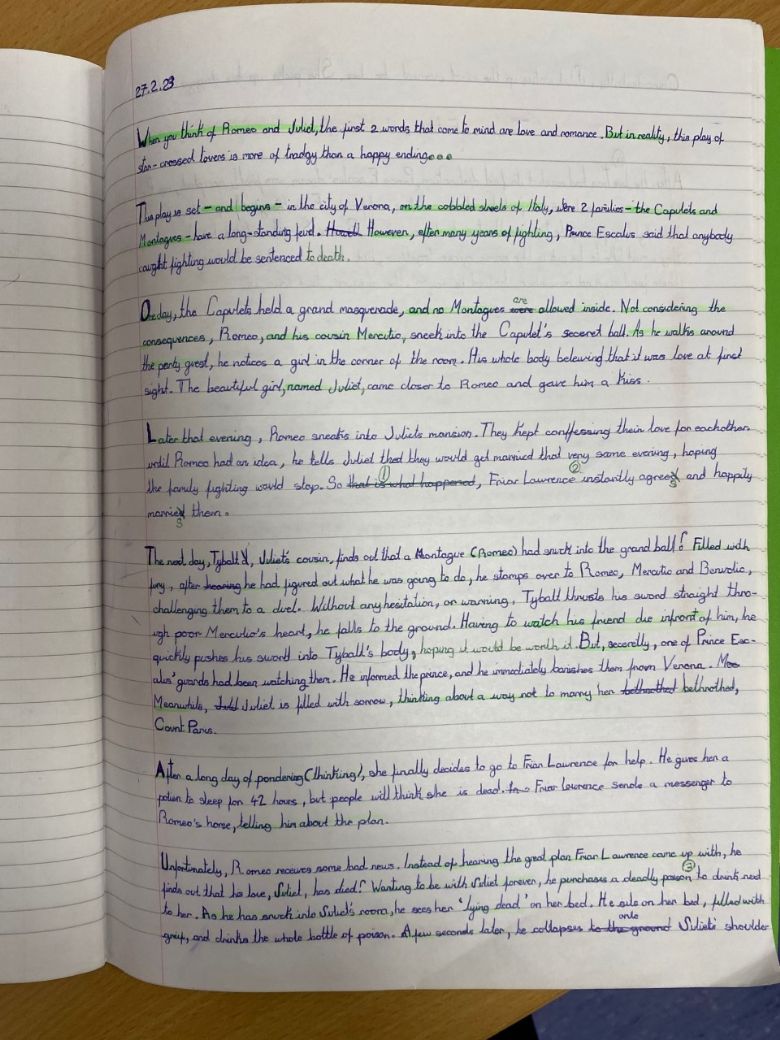 27.2.23
When you think of Romeo and Juliet, the first 2 words that come to mind are love and romance. But in reality, this play of
star-crossed lovers is more of tradgy than a happy ending...
This play is set - and begins - in the city of Verona, on the cobbled streets of Italy, were 2 families - the Capulets and
Montagues - have a long-standing feud. However, after many years of fighting, Prince Escalus said that anybody
caught fighting would be sentenced to death.
One day, the Capulets held a grand masquerade, and no Montagues are allowed inside. Not considering the
consequences, Romeo, and his cousin Mercutio, sneek into the Capulet's seceret ball. As he walks around
the party guest, he notices a girl in the corner of the room. His whole body beleiving that it was love at first
sight. The beautiful girl, named Juliet, came closer to Romeo and gave him a kiss.
Later that evening, Romeo sneaks into Juliets mansion. They kept conffessing their love for eachother
until Romeo had an idea, he tells Juliet that they would get married that very same evening, hoping
the family fighting would stop. So that is what happened, Friar Lawrence instantly agrees and happily
marries them.
The next day, Tybalt, Juliet's cousin, finds out that a Montague (Romeo) had snuck into the grand ball! Filled with
fury, after hearing he had figured out what he was going to do, he stamps over to Romeo, Mercutio and Benvolio,
challenging them to a duel. Without any hesitation, or warning, Tybalt thrusts his sword straight thro-
ugh poor Mercutio's heart, he falls to the ground. Having to watch his friend die infront of him, he
quickly pushes his sword into Tybalt's body, hoping it would be worth it. But, secretly, one of Prince Esc-
alus' guards had been watching them. He informed the prince, and he immediately banishes them from Verona.
Meanwhile, Juliet is filled with sorrow, thinking about a way not to marry her bethrothed,
Count Paris.
After a long day of pondering (thinking), she finally decides to go to Friar Lawrence for help. He gives her a
potion to sleep for 42 hours, but people will think she is dead. Friar Lawrence sends a messenger to
Romeo's home, telling him about the plan.
Unfortunately, Romeo receives some bad news. Instead of hearing the great plan Friar Lawrence came up with, he
finds out that his love, Juliet, has died! Wanting to be with Juliet forever, he purchases a deadly poison to drink next
to her. As he has snuck into Juliet's room, he sees her 'lying dead' on her bed. He sits on her bed, filled with
grief, and drinks the whole bottle of poison. A few seconds later, he collapses onto Juliet's shoulder